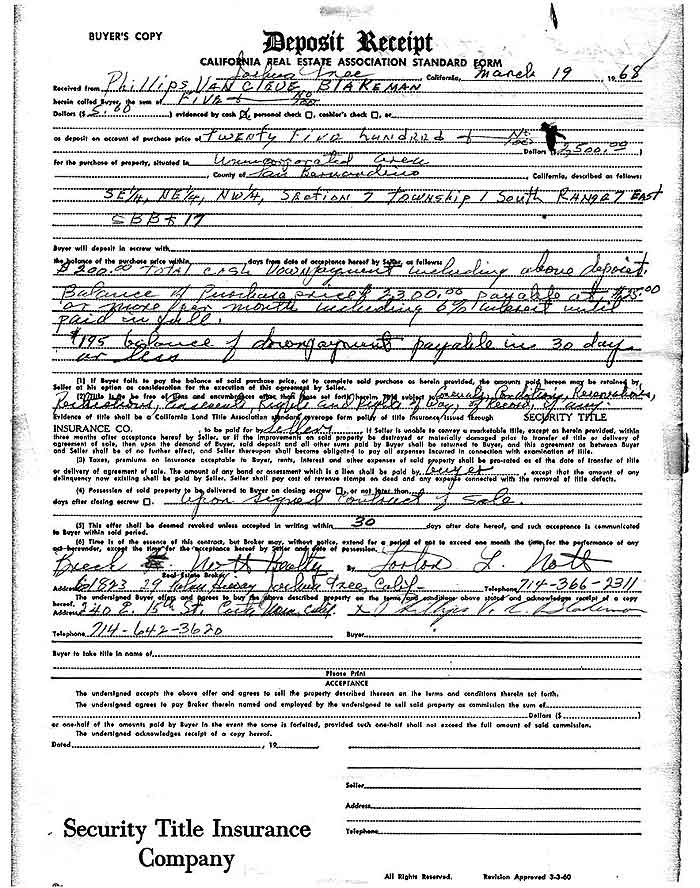 BUYER'S COPY
Deposit Receipt
CALIFORNIA REAL ESTATE ASSOCIATION STANDARD FORM
Joshua Tree California, March 19 1968
Received from Phillips VAN CLEVE BLAKEMAN
herein called Buyer, the sum of FIVE & No/100
Dollars ($ 5.00 ) evidenced by cash personal check ☐, cashier's check ☐, or
as deposit on account of purchase price of TWENTY FIVE hundred & No/100
Dollars ($ 2,500.00 )
for the purchase of property, situated in Unincorporated Area
, County of San Bernardino California, described as follows:
SE¼, NE¼, NW¼, Section 7 Township 1 South RANGE 7 EAST
SBB&
Buyer will deposit in escrow with
the balance of the purchase price within days from date of acceptance hereof by Seller, as follows:
$200.00 TOTAL CASH Downpayment including above deposit.
Balance of Purchase price $2300.00 payable at $25.00
or more per month including 6% interest until
paid in full.
$195 balance of downpayment payable in 30 days
or less
(1) If Buyer fails to pay the balance of said purchase price, or to complete said purchase as herein provided, the amounts paid hereon may be retained by
Seller at his option as consideration for the execution of this agreement by Seller.
(2) Title is to be free of liens and encumbrances other than those set forth herein. Title subject to Covenants, Conditions, Reservations,
Restrictions, Easements, Rights and Rights of Way, of Record, if any.
Evidence of title shall be a California Land Title Association standard coverage form policy of title insurance issued through SECURITY TITLE
INSURANCE CO. , to be paid for by Seller. If Seller is unable to convey a marketable title, except as herein provided, within
three months after acceptance hereof by Seller, or if the improvements on said property be destroyed or materially damaged prior to transfer of title or delivery of
agreement of sale, then upon the demand of Buyer, said deposit and all other sums paid by Buyer shall be returned to Buyer, and this agreement as between Buyer
and Seller shall be of no further effect, and Seller thereupon shall become obligated to pay all expenses incurred in connection with examination of title.
(3) Taxes, premiums on insurance acceptable to Buyer, rents, interest and other expenses of said property shall be pro-rated as of the date of transfer of title
or delivery of agreement of sale. The amount of any bond or assessment which is a lien shall be paid by buyer , except that the amount of any
delinquency now existing shall be paid by Seller. Seller shall pay cost of revenue stamps on deed and any expense connected with the removal of title defects.
(4) Possession of said property to be delivered to Buyer on closing escrow ☐, or not later than
days after closing escrow ☐. Upon signed Contract of Sale.
(5) This offer shall be deemed revoked unless accepted in writing within 30 days after date hereof, and such acceptance is communicated
to Buyer within said period.
(6) Time is of the essence of this contract, but Broker may, without notice, extend for a period of not to exceed one month the time for the performance of any
act hereunder, except the time for the acceptance hereof by Seller and date of possession.
Nott Realty By L. Nott
Real Estate Broker
Address 61823 29 Palms Hiway Joshua Tree, Calif. Telephone 714-366-2311
The undersigned Buyer offers and agrees to buy the above described property on the terms and conditions above stated and acknowledges receipt of a copy
hereof.
Address 240 E. 15th St. Costa Mesa, Calif. X Phillips V. C. Blakeman
Telephone 714-642-3620 Buyer
Buyer to take title in name of
Please Print
ACCEPTANCE
The undersigned accepts the above offer and agrees to sell the property described thereon on the terms and conditions therein set forth.
The undersigned agrees to pay Broker therein named and employed by the undersigned to sell said property as commission the sum of
Dollars ($ )
or one-half of the amounts paid by Buyer in the event the same is forfeited, provided such one-half shall not exceed the full amount of said commission.
The undersigned acknowledges receipt of a copy hereof.
Dated , 19
Seller
Address
Telephone
Security Title Insurance
Company
All Rights Reserved. Revision Approved 3-3-60